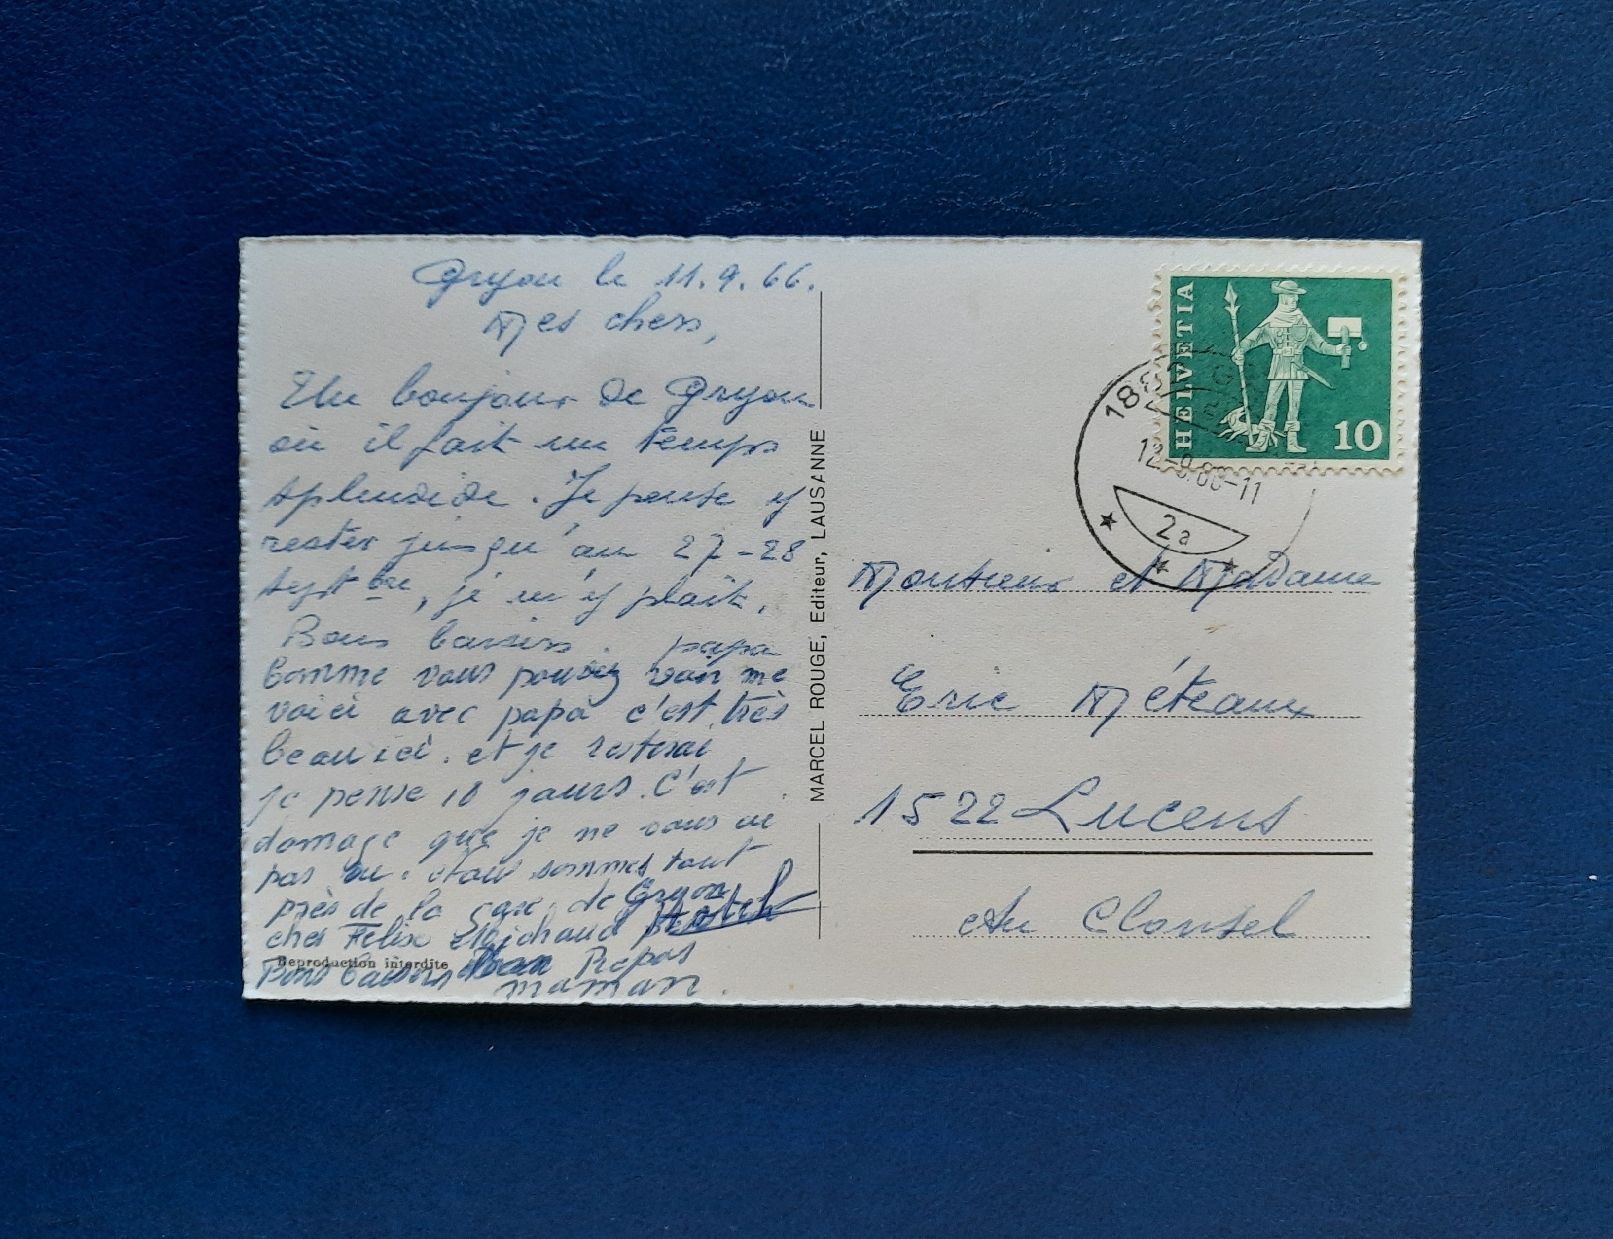 Gryon le 11.9.66.
Mes chers,
Un bonjour de Gryon
où il fait un temps
splendide. Je pense y
rester jusqu'au 27-28
Sept bre, je m'y plait.
Bons baisers papa
Comme vous pouvez voir me
voici avec papa c'est très
beau ici. et je resterai
je pense 10 jours. C'est
domage que je ne vous ai
pas vu. sommes tout
près de la gare de Gryon
ches Felix Michaud
Bons baisers
maman.
Reproduction interdite
MARCEL ROUGE, Editeur, LAUSANNE
HELVETIA
10
2a
Monsieur et Madame
Eric Méteaux
1522 Lucens
Au Clonsel